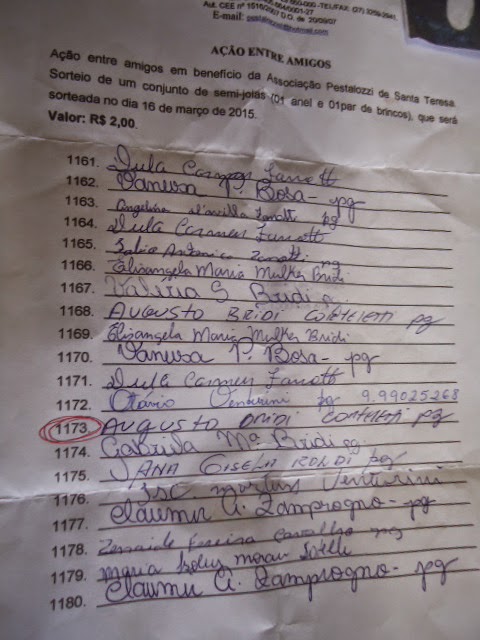 Aut. CEE nº 1516/2007 D.O. de 20/09/07
E-mail: pestalozzi@hotmail.com
AÇÃO ENTRE AMIGOS
Ação entre amigos em benefício da Associação Pestalozzi de Santa Teresa.
Sorteio de um conjunto de semi-joias (01 anel e 01par de brincos), que será
sorteada no dia 16 de março de 2015.
Valor: R$ 2,00.
1161. Dula Carmen Zanott
1162. Vanusa P. Bosa - pg
1163. Angelina Zanott pg
1164. Dula Carmen Zanott
1165. Antonio Zanotti
1166. Elisangela Maria Mulker Bridi
1167. Valéria S. Bridi
1168. AUGUSTO BRIDI pg
1169. Elisangela Maria Mulker Bridi
1170. Vanusa P. Bosa - pg
1171. Dula Carmen Zanott
1172. Otavio Venturini pg 9.99025268
1173. AUGUSTO BRIDI pg
1174. Gabriela Mª Bridi pg
1175. JANA GISELA pg
1176. Martins Venturini
1177. Claumir A. Zamprogno - pg
1178. Zenaide Carvalho pg
1179. Maria
1180. Claumir A. Zamprogno - pg